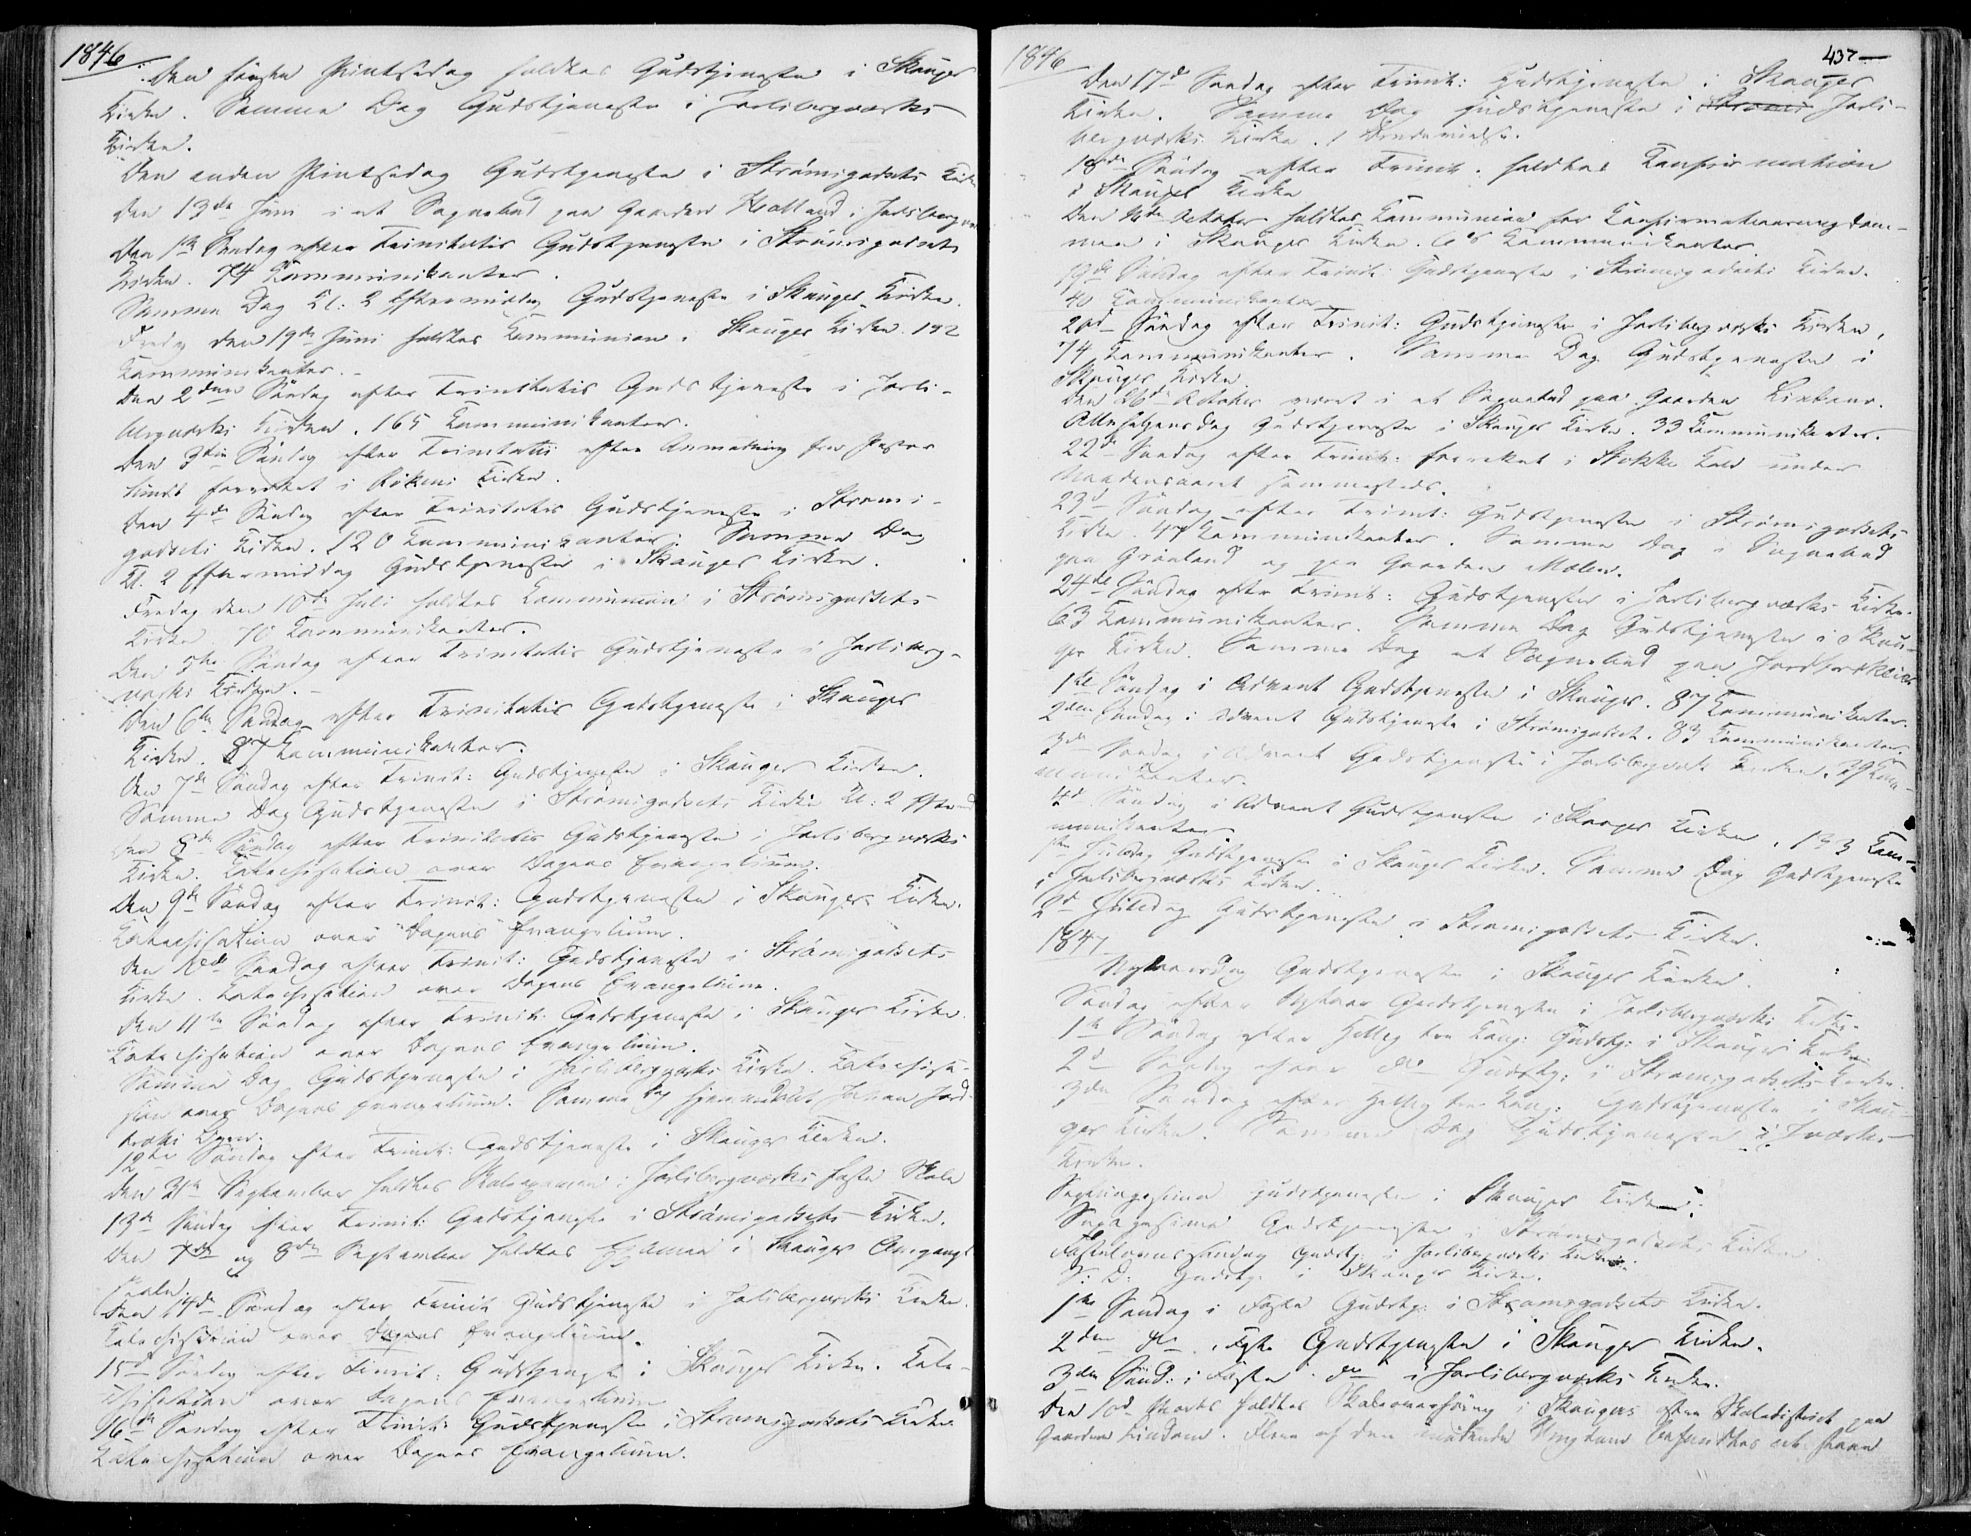 1846
Den første Pintsedag holdtes Gudstjeneste i Skauger
Kirke. Samme Dag Gudstjeneste i Jarlsbergværks
Kirke.
Den anden Pintsedag Gudstjeneste i Strømsgodsets Kirke
Den 13de Juni i et Sognebud paa Gaarden
Den 1ste Søndag efter Trinitatis Gudstjeneste i Strømsgodsets
Kirke. 74 Communikanter.
Samme Dag Kl. 2 Eftermiddag Gudstjeneste i Skauger Kirke.
Fredag den 19de Juni holdtes Communion i Skauger Kirke. 142
Communikanter.
Den 2den Søndag efter Trinitatis Gudstjeneste i Jarls-
bergværks Kirke. 165 Communikanter.
Den 3die Søndag efter Trinitatis efter Anmodning for Pastor
forrettet i Røkens Kirke.
Den 4de Søndag efter Trinitatis Gudstjeneste i Strøms-
godsets Kirke. 120 Communikanter. Samme Dag
Kl. 2 Eftermiddag Gudstjeneste i Skauger Kirke.
Fredag den 10de Juli holdtes Communion i Strømsgodsets
Kirke. 70 Communikanter.
Den 5te Søndag efter Trinitatis Gudstjeneste i Jarlsberg-
værks Kirke.
Den 6te Søndag efter Trinitatis Gudstjeneste i Skauger
Kirke. 87 Communikanter.
Den 7de Søndag efter Trinit: Gudstjeneste i Skauger Kirke.
Samme Dag Gudstjeneste i Strømsgodsets Kirke Kl: 2 Efterm
Den 8de Søndag efter Trinitatis Gudstjeneste i Jarlsbergværks
Kirke. Catechisation over Dagens Evangelium.
Den 9de Søndag efter Trinit: Gudstjeneste i Skauger Kirke.
Catechisation over Dagens Evangelium.
Den 10de Søndag efter Trinit: Gudstjeneste i Strømsgodsets
Kirke. Catechisation over Dagens Evangelium.
Den 11te Søndag efter Trinit: Gudstjeneste i Skauger Kirke.
Catechisation over Dagens Evangelium.
Samme Dag Gudstjeneste i Jarlsbergværks Kirke. Catechisa-
tion over Dagens Evangelium. Samme Dag hjemmedøbt Johan
12te Søndag efter Trinit: Gudstjeneste i Skauger Kirke.
Den September holdtes Skoleexamen i Jarlsbergværks faste Skole
13de Søndag efter Trinit: Gudstjeneste i Strømsgodsets Kirke.
Den 7de og 8de September holdtes Examen i Skauger Omgangs
skoler.
Den 14de Søndag efter Trinit Gudstjeneste i Jarlsbergværks Kirke.
Catechisation over Dagens Evangelium.
15de Søndag efter Trinit: Gudstjeneste i Skauger Kirke. Cate-
chisation over Dagens Evangelium
16de Søndag efter Trinit: Gudstjeneste i Strømsgodsets Kirke.
Catechisation over Dagens Evangelium.
1846
437
Den 17de Søndag efter Trinit: Gudstjeneste i Skauger
Kirke. Samme Dag Gudstjeneste i Strøms Jarls-
bergværks Kirke. 1 Brudevielse.
18de Søndag efter Trinit. holdtes Confirmation
i Skauger Kirke
Den October holdtes Communion for Confirmationsungdom-
men i Skauger Kirke. 68 Communikanter.
19de Søndag efter Trinit: Gudstjeneste i Strømsgodsets Kirke.
40 Communikanter
20d Søndag efter Trinit: Gudstjeneste i Jarlsbergværks Kirke,
74 Communikanter. Samme Dag Gudstjeneste i
Skauger Kirke
Den 26d October været i et Sognebud paa Gaarden
Allehelgensdag Gudstjeneste i Skauger Kirke. 33 Communikanter.
22d Søndag efter Trinit: forrettet i Stokke Kald under
Naadensaaret sammesteds.
23d Søndag efter Trinit: Gudstjeneste i Strømsgodsets
Kirke. 47 Communikanter. Samme Dag i Sognebud
paa Grønland og paa Gaarden Mælen.
24de Søndag efter Trinit: Gudstjeneste i Jarlsbergværks Kirke.
63 Communikanter. Samme Dag Gudstjeneste i Skau-
ger Kirke. Samme Dag et Sognebud paa
1ste Søndag i Advent Gudstjeneste i Skauger. 87 Communikanter.
2den Søndag i Advent Gudstjeneste i Strømsgodset. 83 Communikanter.
3de Søndag i Advent Gudstjeneste i Jarlsbergværk Kirke. 39 Com-
munikanter.
4de Søndag i Advent Gudstjeneste i Skauger Kirke. 133 Com-
munikanter
1ste Juledag Gudstjeneste i Skauger Kirke. Samme Dag Gudstjeneste
i Jarlsbergværks Kirke.
2d Juledag Gudstjeneste i Strømsgodsets Kirke.
1847
Nytaarsdag Gudstjeneste i Skauger Kirke.
Søndag efter Nytaar Gudstjeneste i Jarlsbergværks Kirke.
1te Søndag efter Hellig tre Kong: Gudstj: i Skauger Kirke.
2d Søndag efter do Gudstj: i Strømsgodsets Kirke.
3die Søndag efter Hellig tre Kong: Gudstjeneste i Skau-
ger Kirke. Samme Dag Gudstjeneste i J.værks
Kirke.
Septuagesima Gudstjeneste i Skauger Kirke.
Sexagesima Gudstjeneste i Strømsgodsets Kirke.
Fastelavnssøndag Gudstj: i Jarlsbergværks Kirke.
S: D: Gudstj: i Skauger Kirke.
1ste Søndag i Faste Gudstj: i Strømsgodsets Kirke.
2den do i Faste Gudstjeneste i Skauger Kirke.
3die Sønd: i Faste do i Jarlsbergværks Kirke.
Den 10d Marts holdtes Skoleoverhøring i Skauger østre Skoledistrict paa
Gaarden Lindum. Flere af den mødende Ungdom befandtes at have